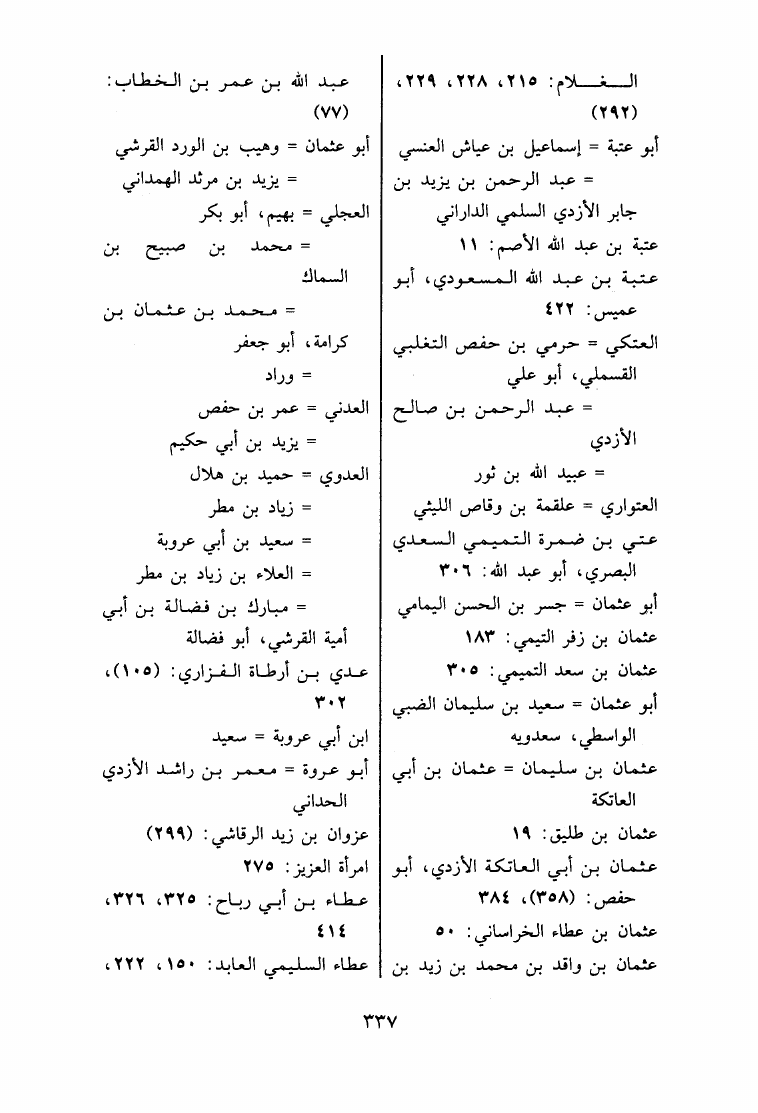 الـــغـــلام: ٢١٥، ٢٢٨، ٢٢٩،
(٢٩٢)
أبو عتبة = إسماعيل بن عياش العنسي
= عبد الرحمن بن يزيد بن
جابر الأزدي السلمي الداراني
عتبة بن عبد الله الأصم: ١١
عتبة بن عبد الله المسعودي، أبو
عميس: ٤٢٢
العتكي = حرمي بن حفص التغلبي
القسملي، أبو علي
= عبد الرحمن بن صالح
الأزدي
= عبيد الله بن ثور
العتواري = علقمة بن وقاص الليثي
عتي بن ضمرة التميمي السعدي
البصري، أبو عبد الله: ٣٠٦
أبو عثمان = جسر بن الحسن اليمامي
عثمان بن زفر التيمي: ١٨٣
عثمان بن سعد التميمي: ٣٠٥
أبو عثمان = سعيد بن سليمان الضبي
الواسطي، سعدويه
عثمان بن سليمان = عثمان بن أبي
العاتكة
عثمان بن طليق: ١٩
عثمان بن أبي العاتكة الأزدي، أبو
حفص: (٣٥٨)، ٣٨٤
عثمان بن عطاء الخراساني: ٥٠
عثمان بن واقد بن محمد بن زيد بن
عبد الله بن عمر بن الخطاب:
(٧٧)
أبو عثمان = وهيب بن الورد القرشي
= يزيد بن مرثد الهمداني
العجلي = بهيم، أبو بكر
= محمد بن صبيح بن
السماك
= محمد بن عثمان بن
كرامة، أبو جعفر
= وراد
العدني = عمر بن حفص
= يزيد بن أبي حكيم
العدوي = حميد بن هلال
= زياد بن مطر
= سعيد بن أبي عروبة
= العلاء بن زياد بن مطر
= مبارك بن فضالة بن أبي
أمية القرشي، أبو فضالة
عدي بن أرطاة الفزاري: (١٠٥)،
٣٠٢
ابن أبي عروبة = سعيد
أبو عروة = معمر بن راشد الأزدي
الحداني
عزوان بن زيد الرقاشي: (٢٩٩)
امرأة العزيز: ٢٧٥
عطاء بن أبي رباح: ٣٢٥، ٣٢٦،
٤١٤
عطاء السليمي العابد: ١٥٠، ٢٢٢،
٣٣٧